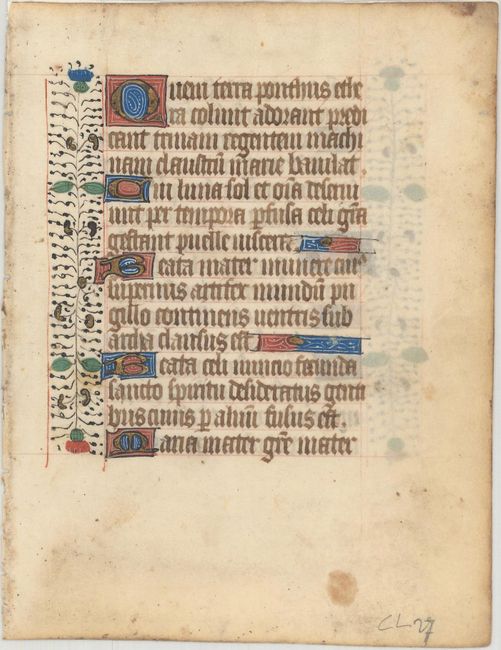 Quem terra ponthus ethe
ra colunt adorant predi
cant trinam regentem machi
nam claustrū marie baiulat.
Cui luna sol et oīa deserui
unt per tempora pfusa celi grā
gestant puelle viscera.
Beata mater munere cuiꝰ
supernus artifex mundū pu
gillo continens ventris sub
archa clausus est
Beata celi nuncio fecunda
sancto spiritu desideratus genti
bus cuius p alvū fusus est.
Maria mater grē mater
CL27